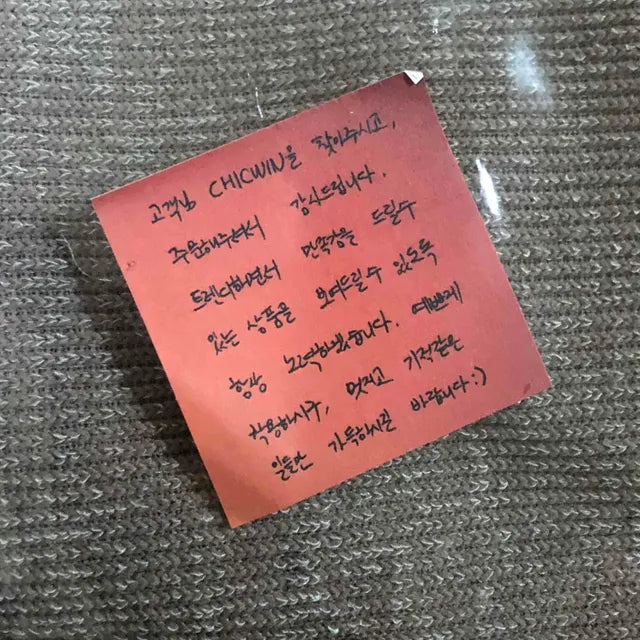 고객님 CHICWIN을 찾아주시고,
주문해주셔서 감사드립니다.
트렌디하면서 만족감을 드릴수
있는 상품을 보여드릴수 있도록
항상 노력하겠습니다. 예쁘게
착용하시구, 멋지고 기적같은
일들만 가득하시길 바랍니다:)